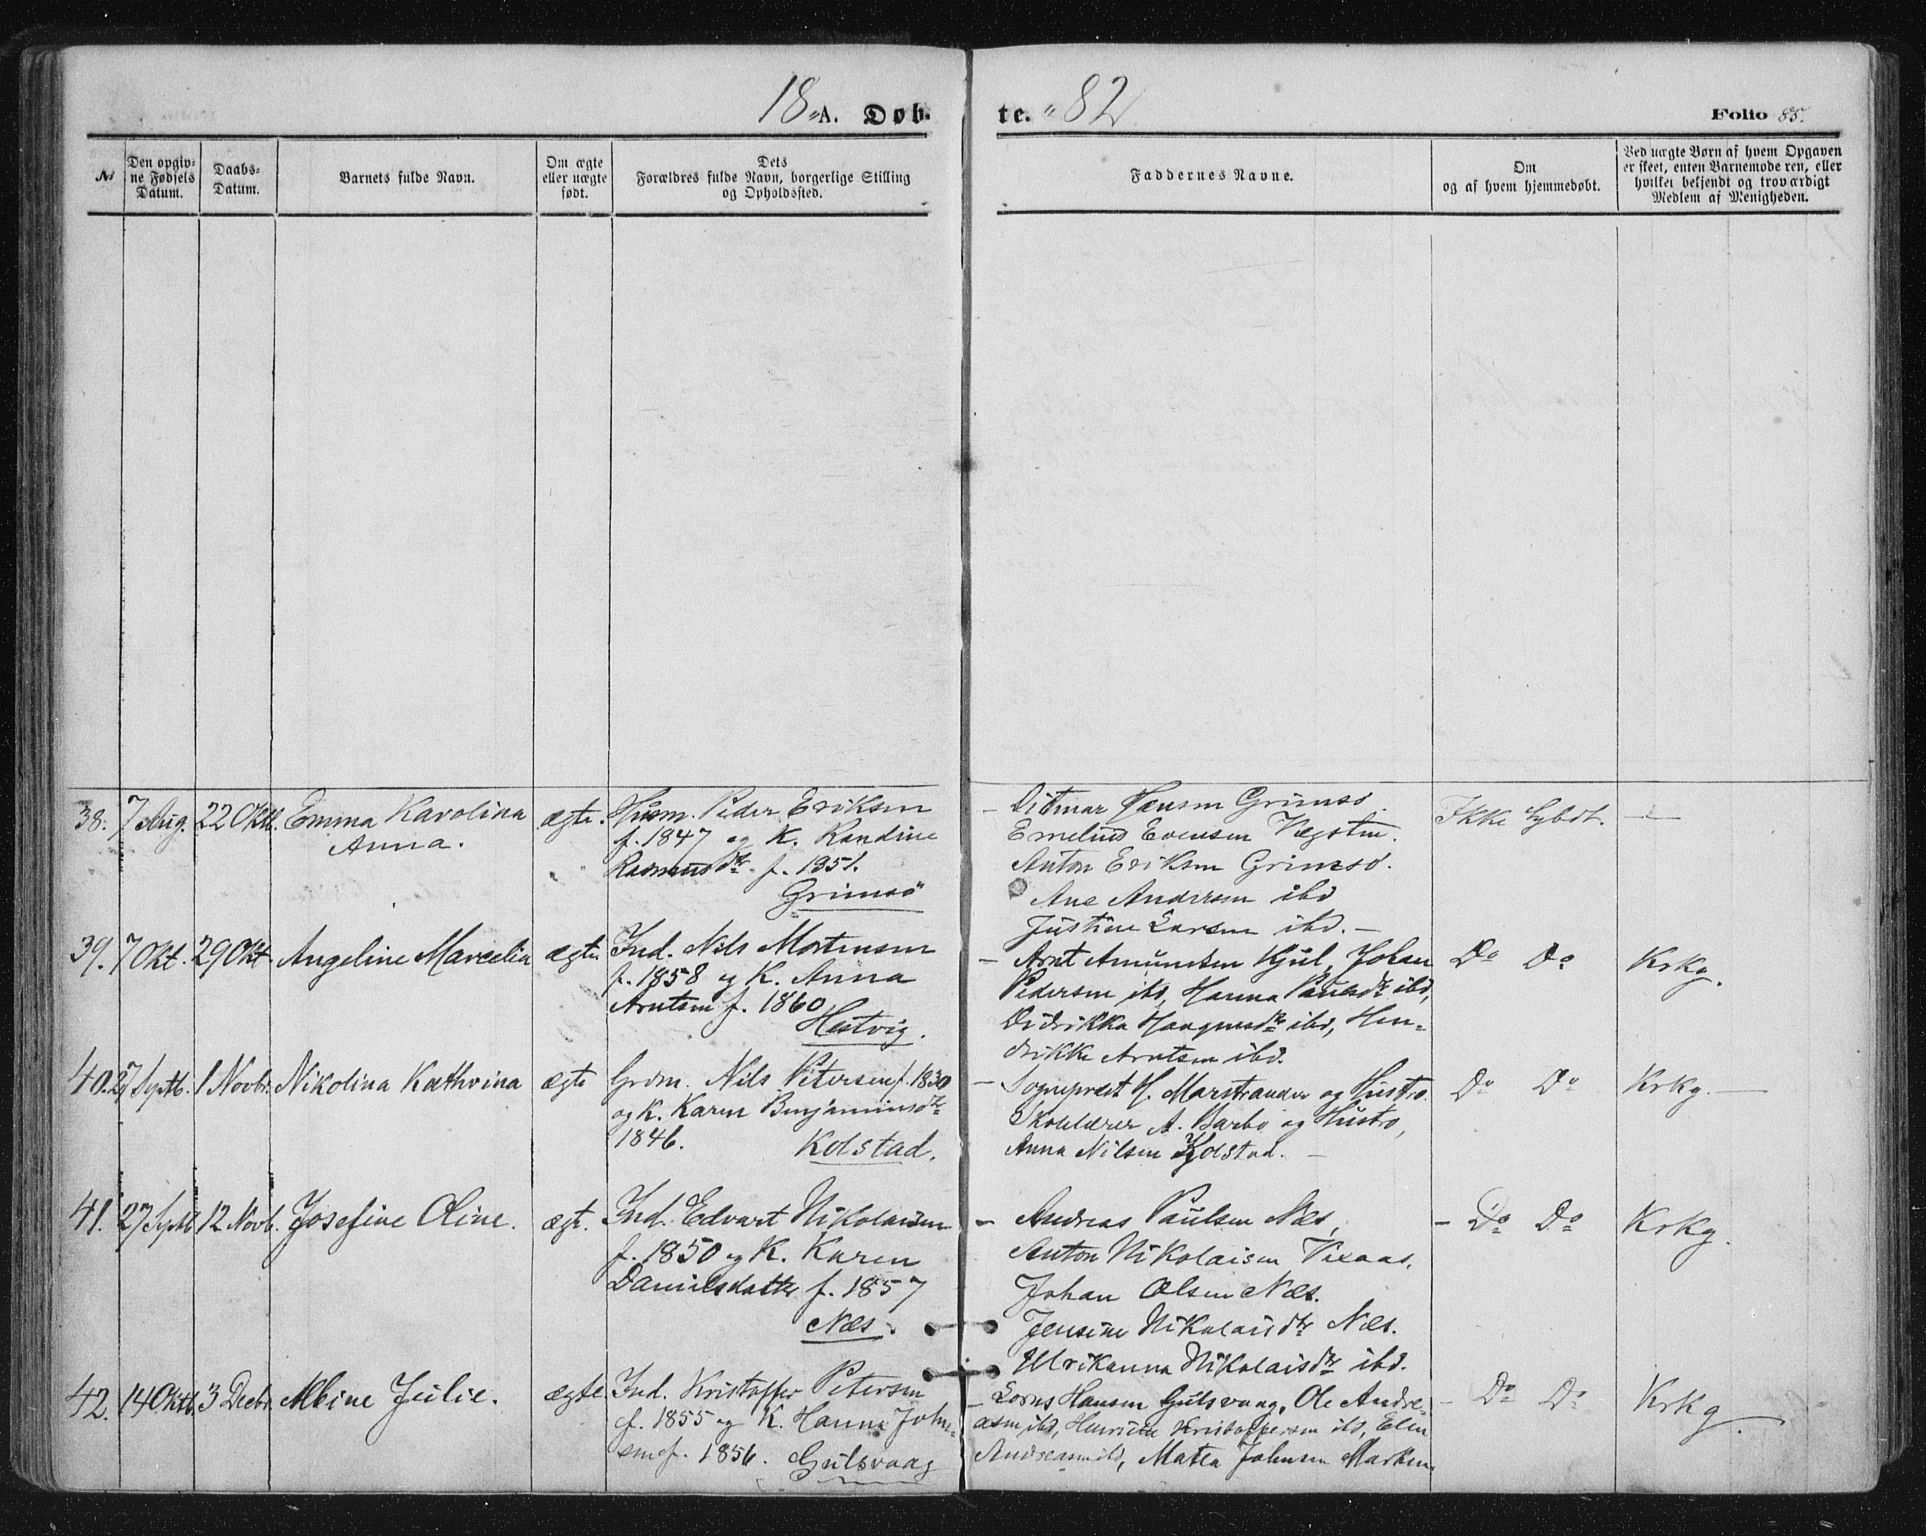 18 A. Døb-
te. 82
Folio 85.
№
Den opgiv-
ne Fødsels
Datum.
Daabs-
Datum.
Barnets fulde Navn.
Om ægte
eller uægte
født.
Dets
Forældres fulde Navn, borgerlige Stilling
og Opholdssted.
Faddernes Navne.
Om
og af hvem hjemmedøbt.
Ved uægte Børn af hvem Opgaven
er skeet, enten Barnemoderen, eller
hvilket bekjendt og troværdigt
Medlem af Menigheden.
38. 7 Aug. 22 Oktb. Emma Karolina
Anna.
ægte.
Husm. Peder Eriksen
f. 1847 og K. Randine
Rasmusdtr. f. 1851.
Grimsö
Ditmar Hansen Grimsö.
Evensen Vægsten.
Anton Eriksen Grimsö.
Ane Andersen ibd
Justine Larsen ibd. -
Ikke
39. 7 Okt. 29 Okt. Angeline Marcelia
ægte.
Ind. Nils Mortensen
f. 1858 og K. Anna
Arntsen f. 1860
Hestvig.
- Arnt Amundsen Kjul, Johan
Pedersen ibd, Hanna Paulsdtr ibd,
Didrikka Haagensdtr ibd, Hen-
drikke Arntsen ibd.
Do Do Krkg.
40. 27 Septb. 1 Novbr. Nikolina Kathrina
ægte
Grdm. Nils Petersen f. 1830
og K. Karen Benjaminsdtr
1846. Kolstad.
- Sogneprest H. Marstrander og Hustro.
Skolelærer A. Barbo og Hustro,
Anna Nilsen Kolstad. -
Do Do Krkg. -
41. 27 Septb 12 Novb. Josefine Oline.
ægte.
Ind. Edvart Nikolaisen
f. 1850 og K. Karen
Danielsdatter f. 1857
Næs.
- Andreas Paulsen Næs,
Anton Nikolaisen Vixaas.
Johan Olsen Næs.
Jensine Nikolaisdtr Næs.
Ulrikanna Nikolaisdtr ibd.
- Do Do Krkg.
42. 14 Oktb. 3 Decbr. Albine Julie.
ægte
Ind. Kristoffer Petersen
f. 1855 og K. Hanna John-
sen f. 1856. Gulsvaag
- Lorns Hansen Gulsvaag, Ole Andre-
asen ibd, Henriette Kristoffersen ibd, Elen
Andreasen ibd, Matea Johnsen Marken.
- Do Do Krkg.